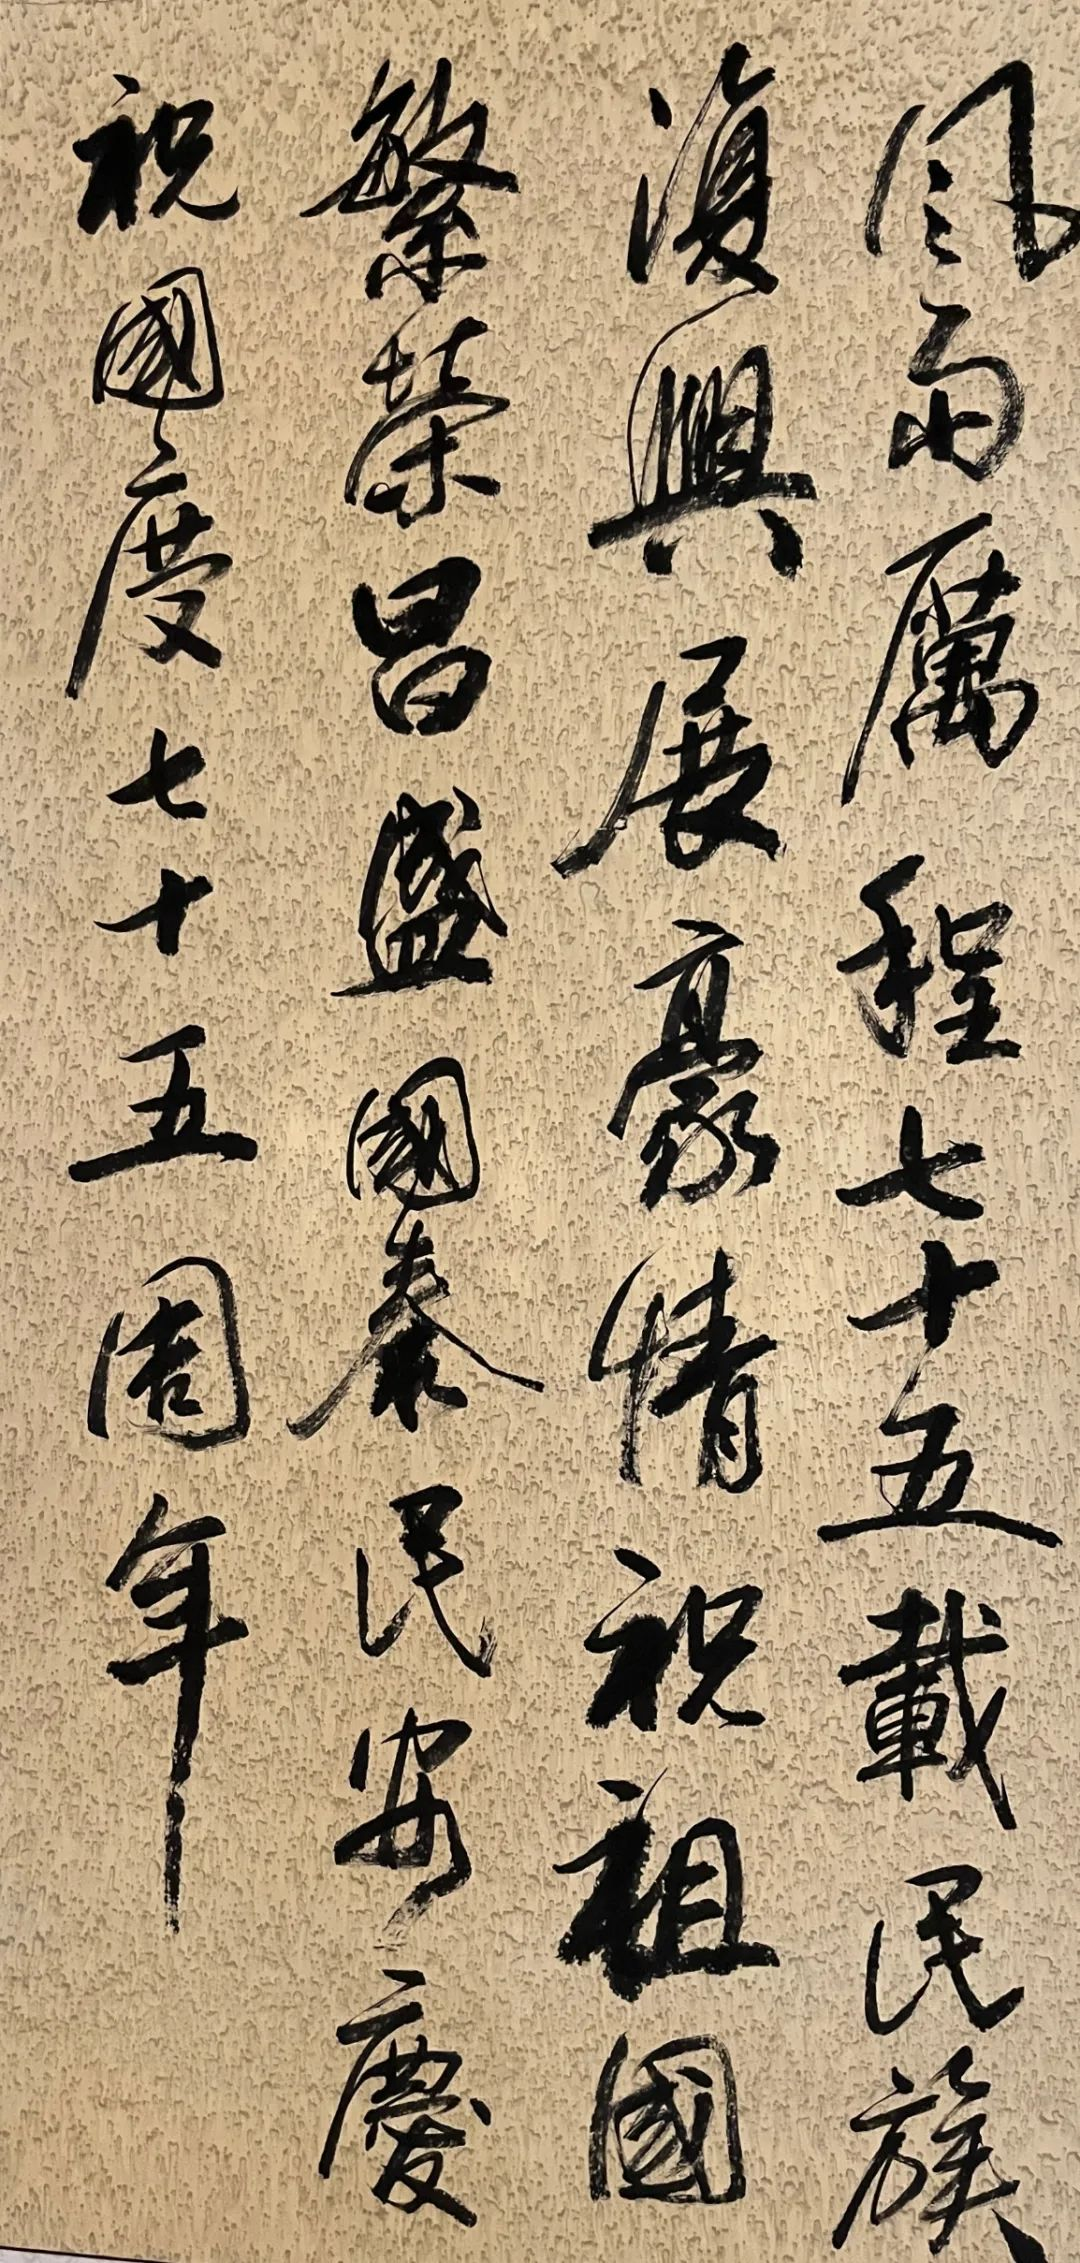 風雨厲程七十五載民族
復興展豪情祝祖國
繁榮昌盛國泰民安慶
祝國慶七十五周年